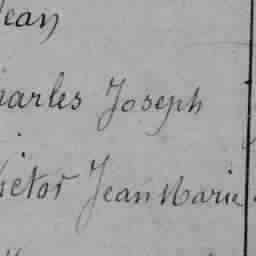 Jean
harles Joseph
ictor Jean Marie